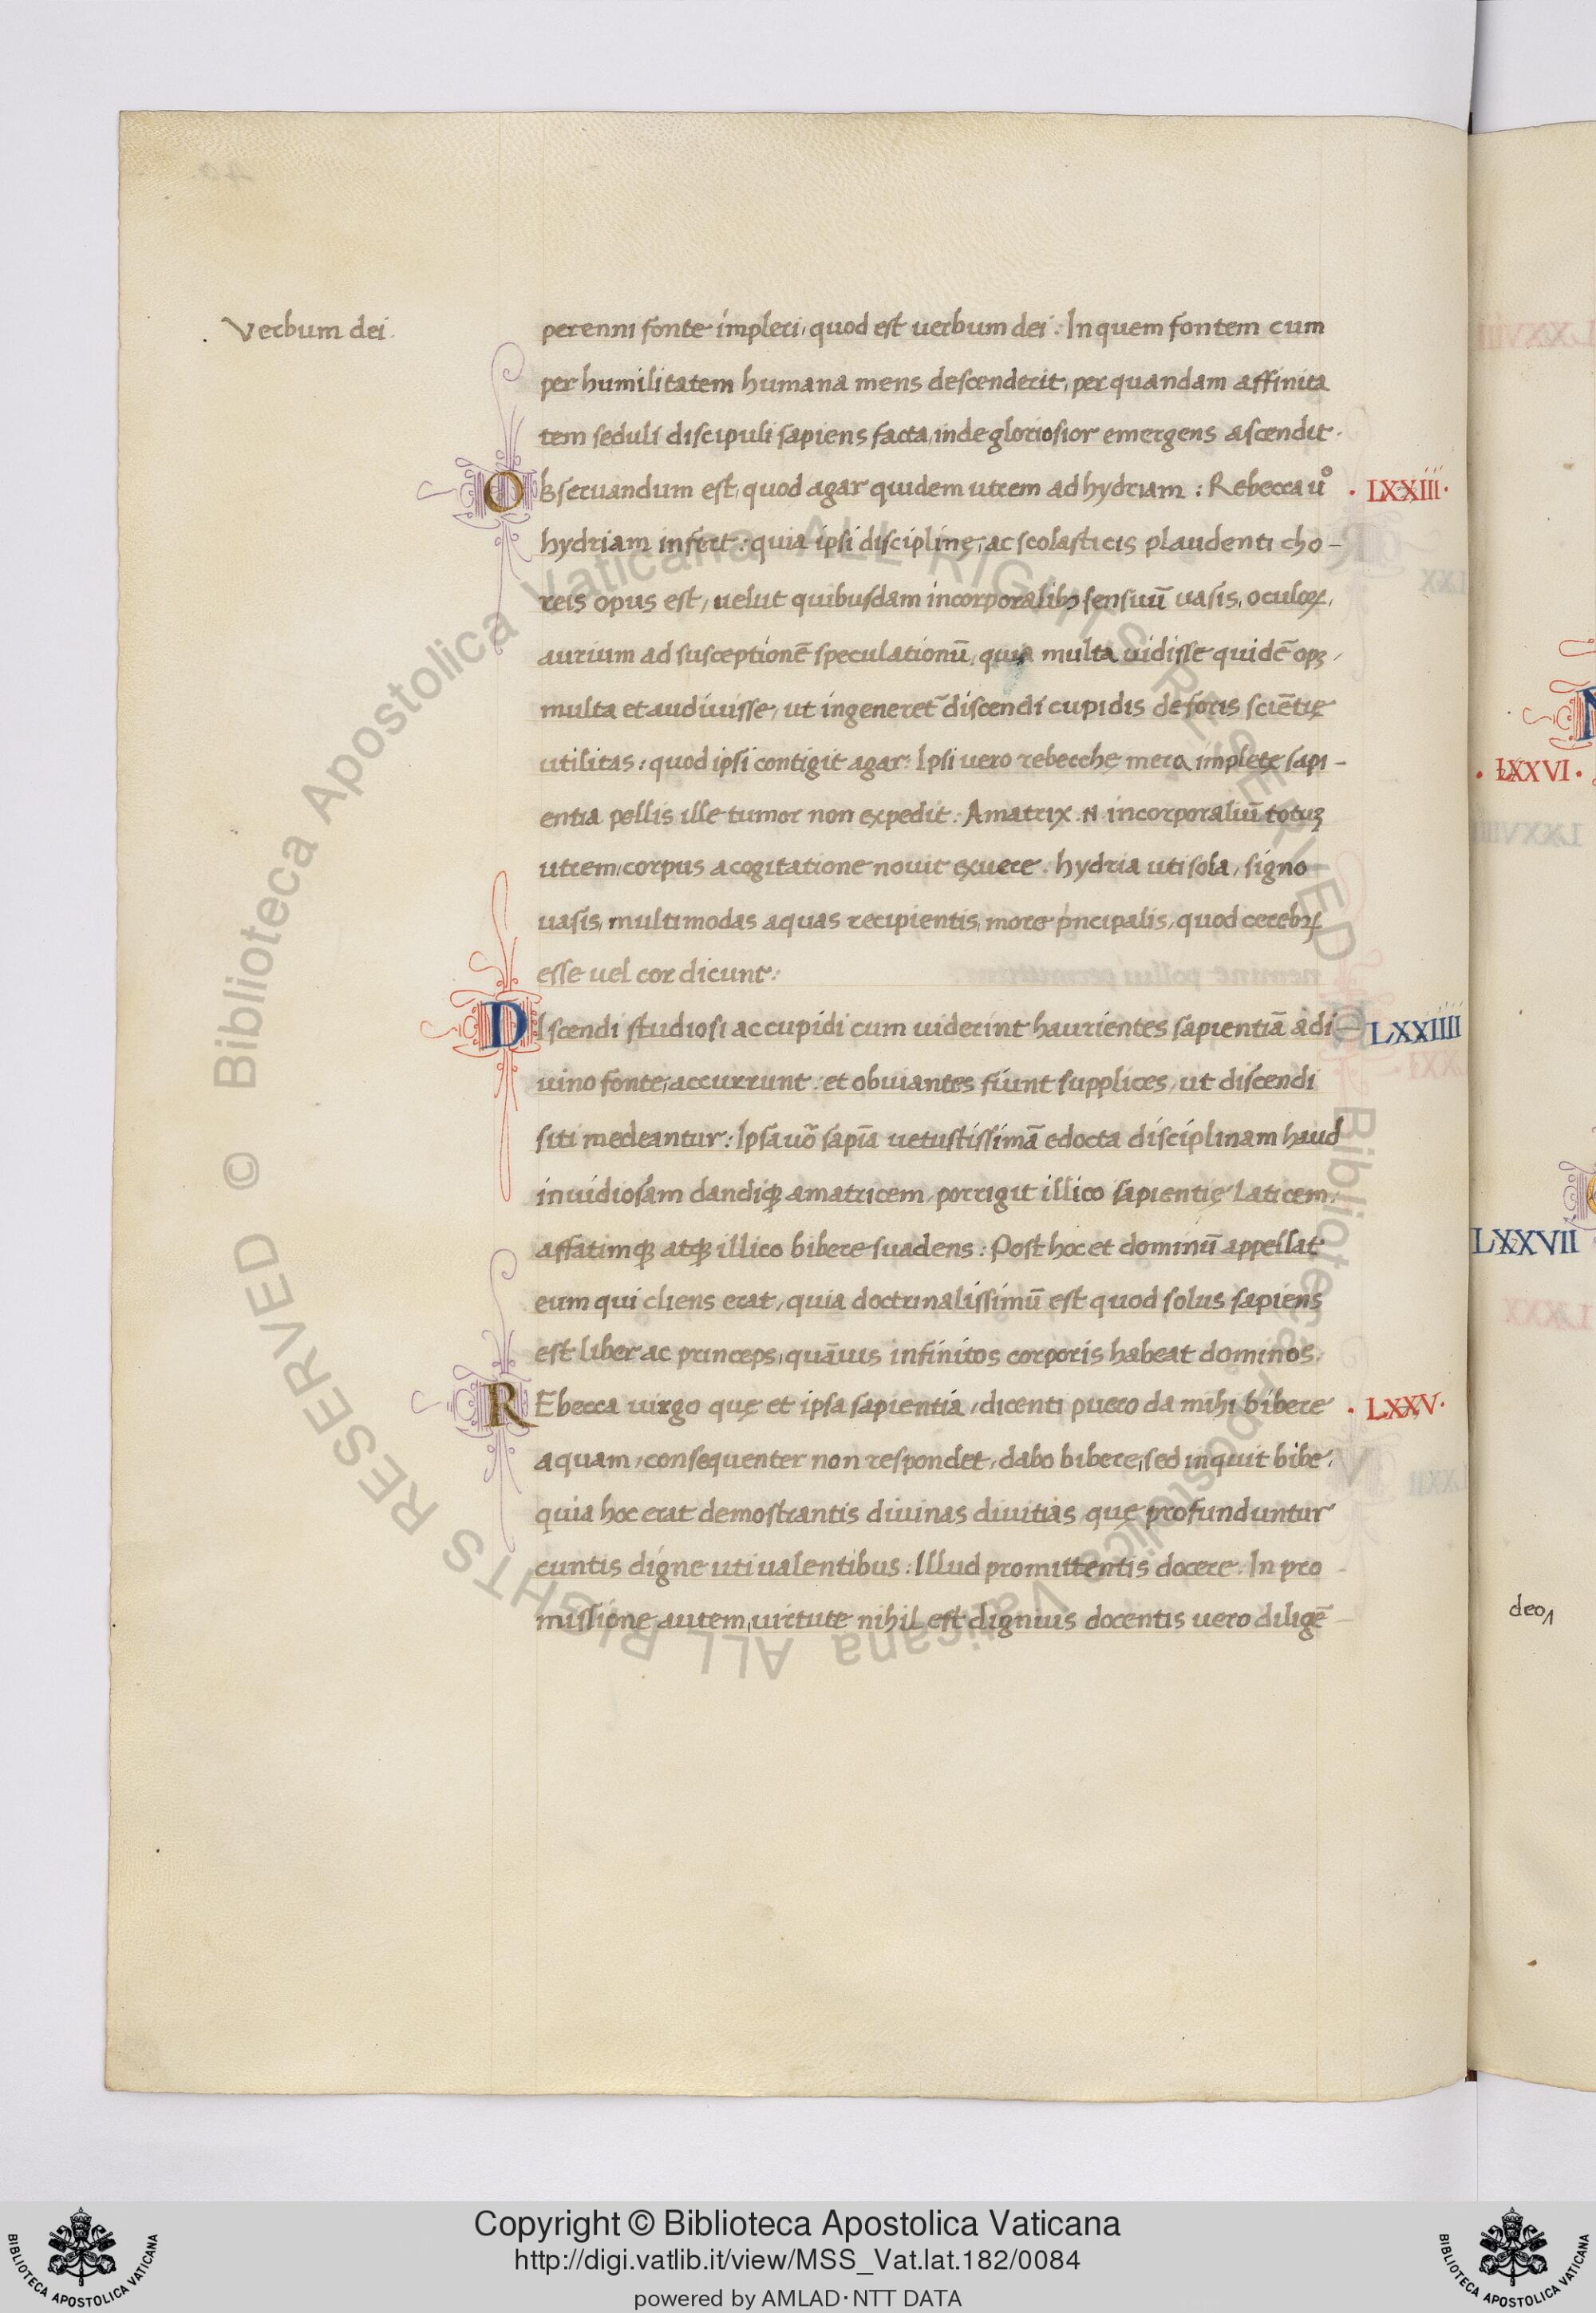 Verbum dei.
perenni fonte impleri, quod est uerbum dei: In quem fontem cum
per humilitatem humana mens descenderit, per quandam affinita
tem seduli discipuli sapiens facta, inde gloriosior emergens ascendit.
Obseruandum est, quod agar quidem utrem ad hydriam: Rebecca uº
. LXXIII.
hydriam infert: quia ipsi disciplinę, ac scolasticis plaudenti cho-
reis opus est, uelut quibusdam incorporalibꝫ sensuū uasis, oculoꝝ,
aurium ad susceptionē speculationū, quia multa uidisse quidē opꝫ,
multa et audiuisse, ut ingeneret᷑ discendi cupidis de foris sciētię
utilitas: quod ipsi contigit agar: Ipsi uero rebecchę mera implete sapi-
entia pellis ille tumor non expedit: Amatrix .N. incorporaliū totuꝫ
utrem, corpus a cogitatione nouit exuere. hydria uti sola, signo
uasis, multimodas aquas recipientis, more p̍ncipalis, quod cerebꝝ
esse uel cor dicunt:
Discendi studiosi ac cupidi cum uiderint haurientes sapientiā a di-
LXXIIII
uino fonte, accurrunt: et obuiantes fiunt supplices, ut discendi
siti medeantur: Ipsa uō sapīa uetustissimā edocta disciplinam haud
inuidiosam dandiqꝫ amatricem, porrigit illico sapientię laticem:
affatimqꝫ atqꝫ illico bibere suadens: Post hoc et dominū appellat
eum qui cliens erat, quia doctrinalissimū est quod solus sapiens
est liber ac princeps, quāuis infinitos corporis habeat dominos.
REbecca uirgo quę et ipsa sapientia, dicenti puero da mihi bibere
. LXXV.
aquam, consequenter non respondet, dabo bibere, sed inquit bibe,
quia hoc erat demostrantis diuinas diuitias quę profunduntur
cuntis digne uti ualentibus: Illud promittentis docere: In pro
missione autem, uirtute nihil est dignius docentis uero diligē-
. LXXVI.
LXXVII
deo
© Biblioteca Apostolica Vaticana ALL RIGHTS RESERVED
© Biblioteca Apostolica Vaticana ALL RIGHTS RESERVED
Copyright © Biblioteca Apostolica Vaticana
http://digi.vatlib.it/view/MSS_Vat.lat.182/0084
powered by AMLAD·NTT DATA
BIBLIOTECA APOSTOLICA VATICANA
BIBLIOTECA APOSTOLICA VATICANA